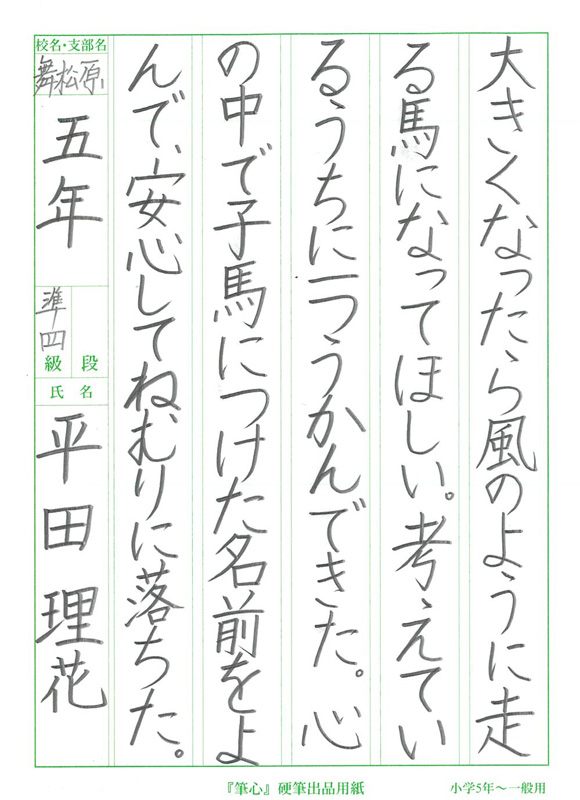 大きくなったら風のように走
る馬になってほしい。考えてい
るうちに一つうかんできた。心
の中で子馬につけた名前をよ
んで、安心してねむりに落ちた。
校名・支部名
舞松原
五年
準四
級 段
氏名
平田理花
『筆心』硬筆出品用紙
小学5年～一般用